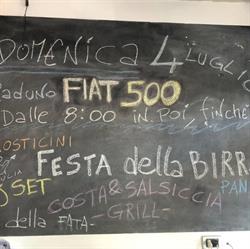 DOMENICA 4 LUGL
RADUNO FIAT 500
Dalle 8:00 in poi finche'
ROSTICINI
FESTA della BIRR
J SET PAN
COSTA & SALSICCIA
-GRILL-
della FATA-